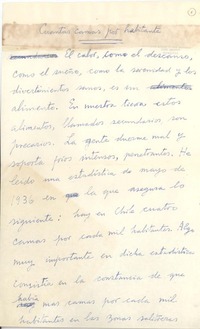 1
Cuantas camas por habitante
El calor, como el descanso,
como el sueño, como la serenidad y los
divertimientos sanos, es un
alimento. En nuestra tierra estos
alimentos, llamados secundarios, son
precarios. La gente duerme mal y
soporta fríos intensos, penetrantes. He
leído una estadística de mayo de
1936 en la que asegura lo
siguiente: hay en Chile cuatro
camas por cada mil habitantes. Algo
muy importante en dicha estadística
consistía en la constancia de que
había mas camas por cada mil
habitantes en las zonas salitreras